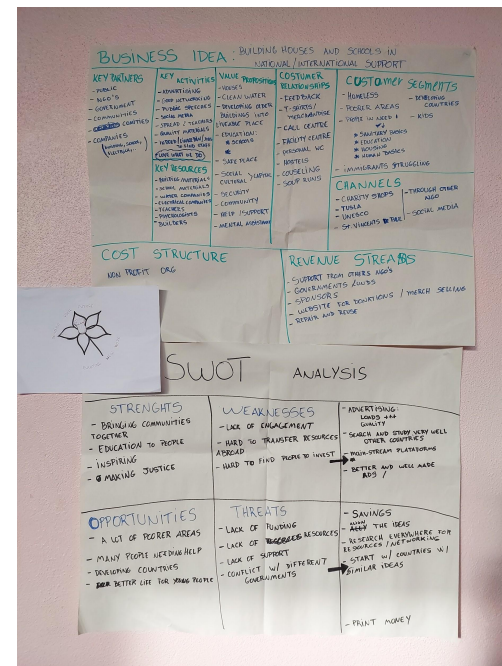 BUSINESS IDEA: BUILDING HOUSES AND SCHOOLS IN
NATIONAL/INTERNATIONAL SUPPORT
KEY PARTNERS
- PUBLIC
- NGO'S
- GOVERNMENT
- COMMUNITIES
COUNTIES
- COMPANIES
KEY
ACTIVITIES
- ADVERTISING
- GOOD NETWORKING
- PUBLIC SPEECHES
- SOCIAL MEDIA
- QUALITY MATERIALS
LOVE WHAT WE DO
KEY RESOURCES
- BUILDING MATERIALS
- SCHOOL MATERIALS
- WATER COMPANIES
- ELECTRICAL COMPANIES
- TEACHERS
- PSYCHOLOGISTS
- BUILDERS
VALUE PROPOSITIONS
- HOUSES
- CLEAN WATER
- DEVELOPING OLDER
BUILDINGS INTO
LIVEABLE PLACE
- EDUCATION:
SCHOOLS
- SAFE PLACE
- SOCIAL / CAPITAL
CULTURAL
- SECURITY
- COMMUNITY
- HELP / SUPPORT
- MENTAL ASSISTANCE
COSTUMER
RELATIONSHIPS
- FEEDBACK
- T-SHIRTS /
MERCHANDISE
- CALL CENTRE
- FACILITY CENTRE
- PERSONAL WC
- HOSTELS
- COUSELING
- SOUP RUNS
COSTUMER SEGMENTS
- HOMELESS
- POORER AREAS
- PEOPLE IN NEED
SANATARY BASICS
EDUCATION
HOUSING
HUMAN BASICS
- IMMIGRANTS STRUGGLING
- DEVELOPING
COUNTRIES
- KIDS
CHANNELS
- CHARITY SHOPS
- TUSLA
- UNESCO
- ST. VINCENTS DE PAUL
- THROUGH OTHER
NGO
- SOCIAL MEDIA
COST STRUCTURE
NON PROFIT ORG
REVENUE STREAMS
- SUPPORT FROM OTHERS NGO'S
- GOVERNMENTS FUNDS
- SPONSORS
- WEBSITE FOR DONATIONS / MERCH SELLING
- REPAIR AND REUSE
SWOT ANALYSIS
STRENGHTS
- BRINGING COMMUNITIES
TOGETHER
- EDUCATION TO PEOPLE
- INSPIRING
- MAKING JUSTICE
WEAKNESSES
- LACK OF ENGAGEMENT
- HARD TO TRANSFER RESOURCES
ABROAD
- HARD TO FIND PEOPLE TO INVEST
- ADVERTISING:
LOADS +++
QUALITY
- SEARCH AND STUDY VERY WELL
OTHER COUNTRIES
- MAIN-STREAM PLATAFORMS
- BETTER AND WELL MADE
ADS /
OPPORTUNITIES
- A LOT OF POORER AREAS
- MANY PEOPLE NEEDING HELP
- DEVELOPING COUNTRIES
- BETTER LIFE FOR YOUNG PEOPLE
THREATS
- LACK OF FUNDING
- LACK OF RESOURCES
- LACK OF SUPPORT
- CONFLICT W/ DIFFERENT
GOVERNMENTS
- SAVINGS
THE IDEAS
- RESEARCH EVERYWHERE FOR
RESOURCES / NETWORKING
- START W/ COUNTRIES W/
SIMILAR IDEAS
- PRINT MONEY